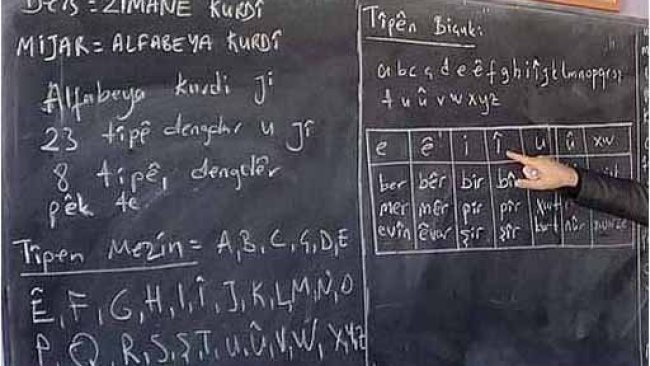 Ders = ZIMANE KURDÎ
MIJAR = ALFABEYA KURDÎ
Alfabeya kurdi ji
23 tîpê dengdar u jî
8 tîpê, dengdêr
pêk te
Tîpen Mezin = A, B, C, Ç, D, E
Ê, F, G, H, I, Î, J, K, L, M, N, O
P, Q, R, S, Ş, T, U, Û, V, W, X, Y, Z
Tîpên Biçuk:
a b c ç d e ê f g h i î j k l m n o p q r s ş
t u û v w x y z
e ê i î u û xw
ber bêr bir bîr
mer mêr pir pîr
evîn êvar şir şîr kurt nûr